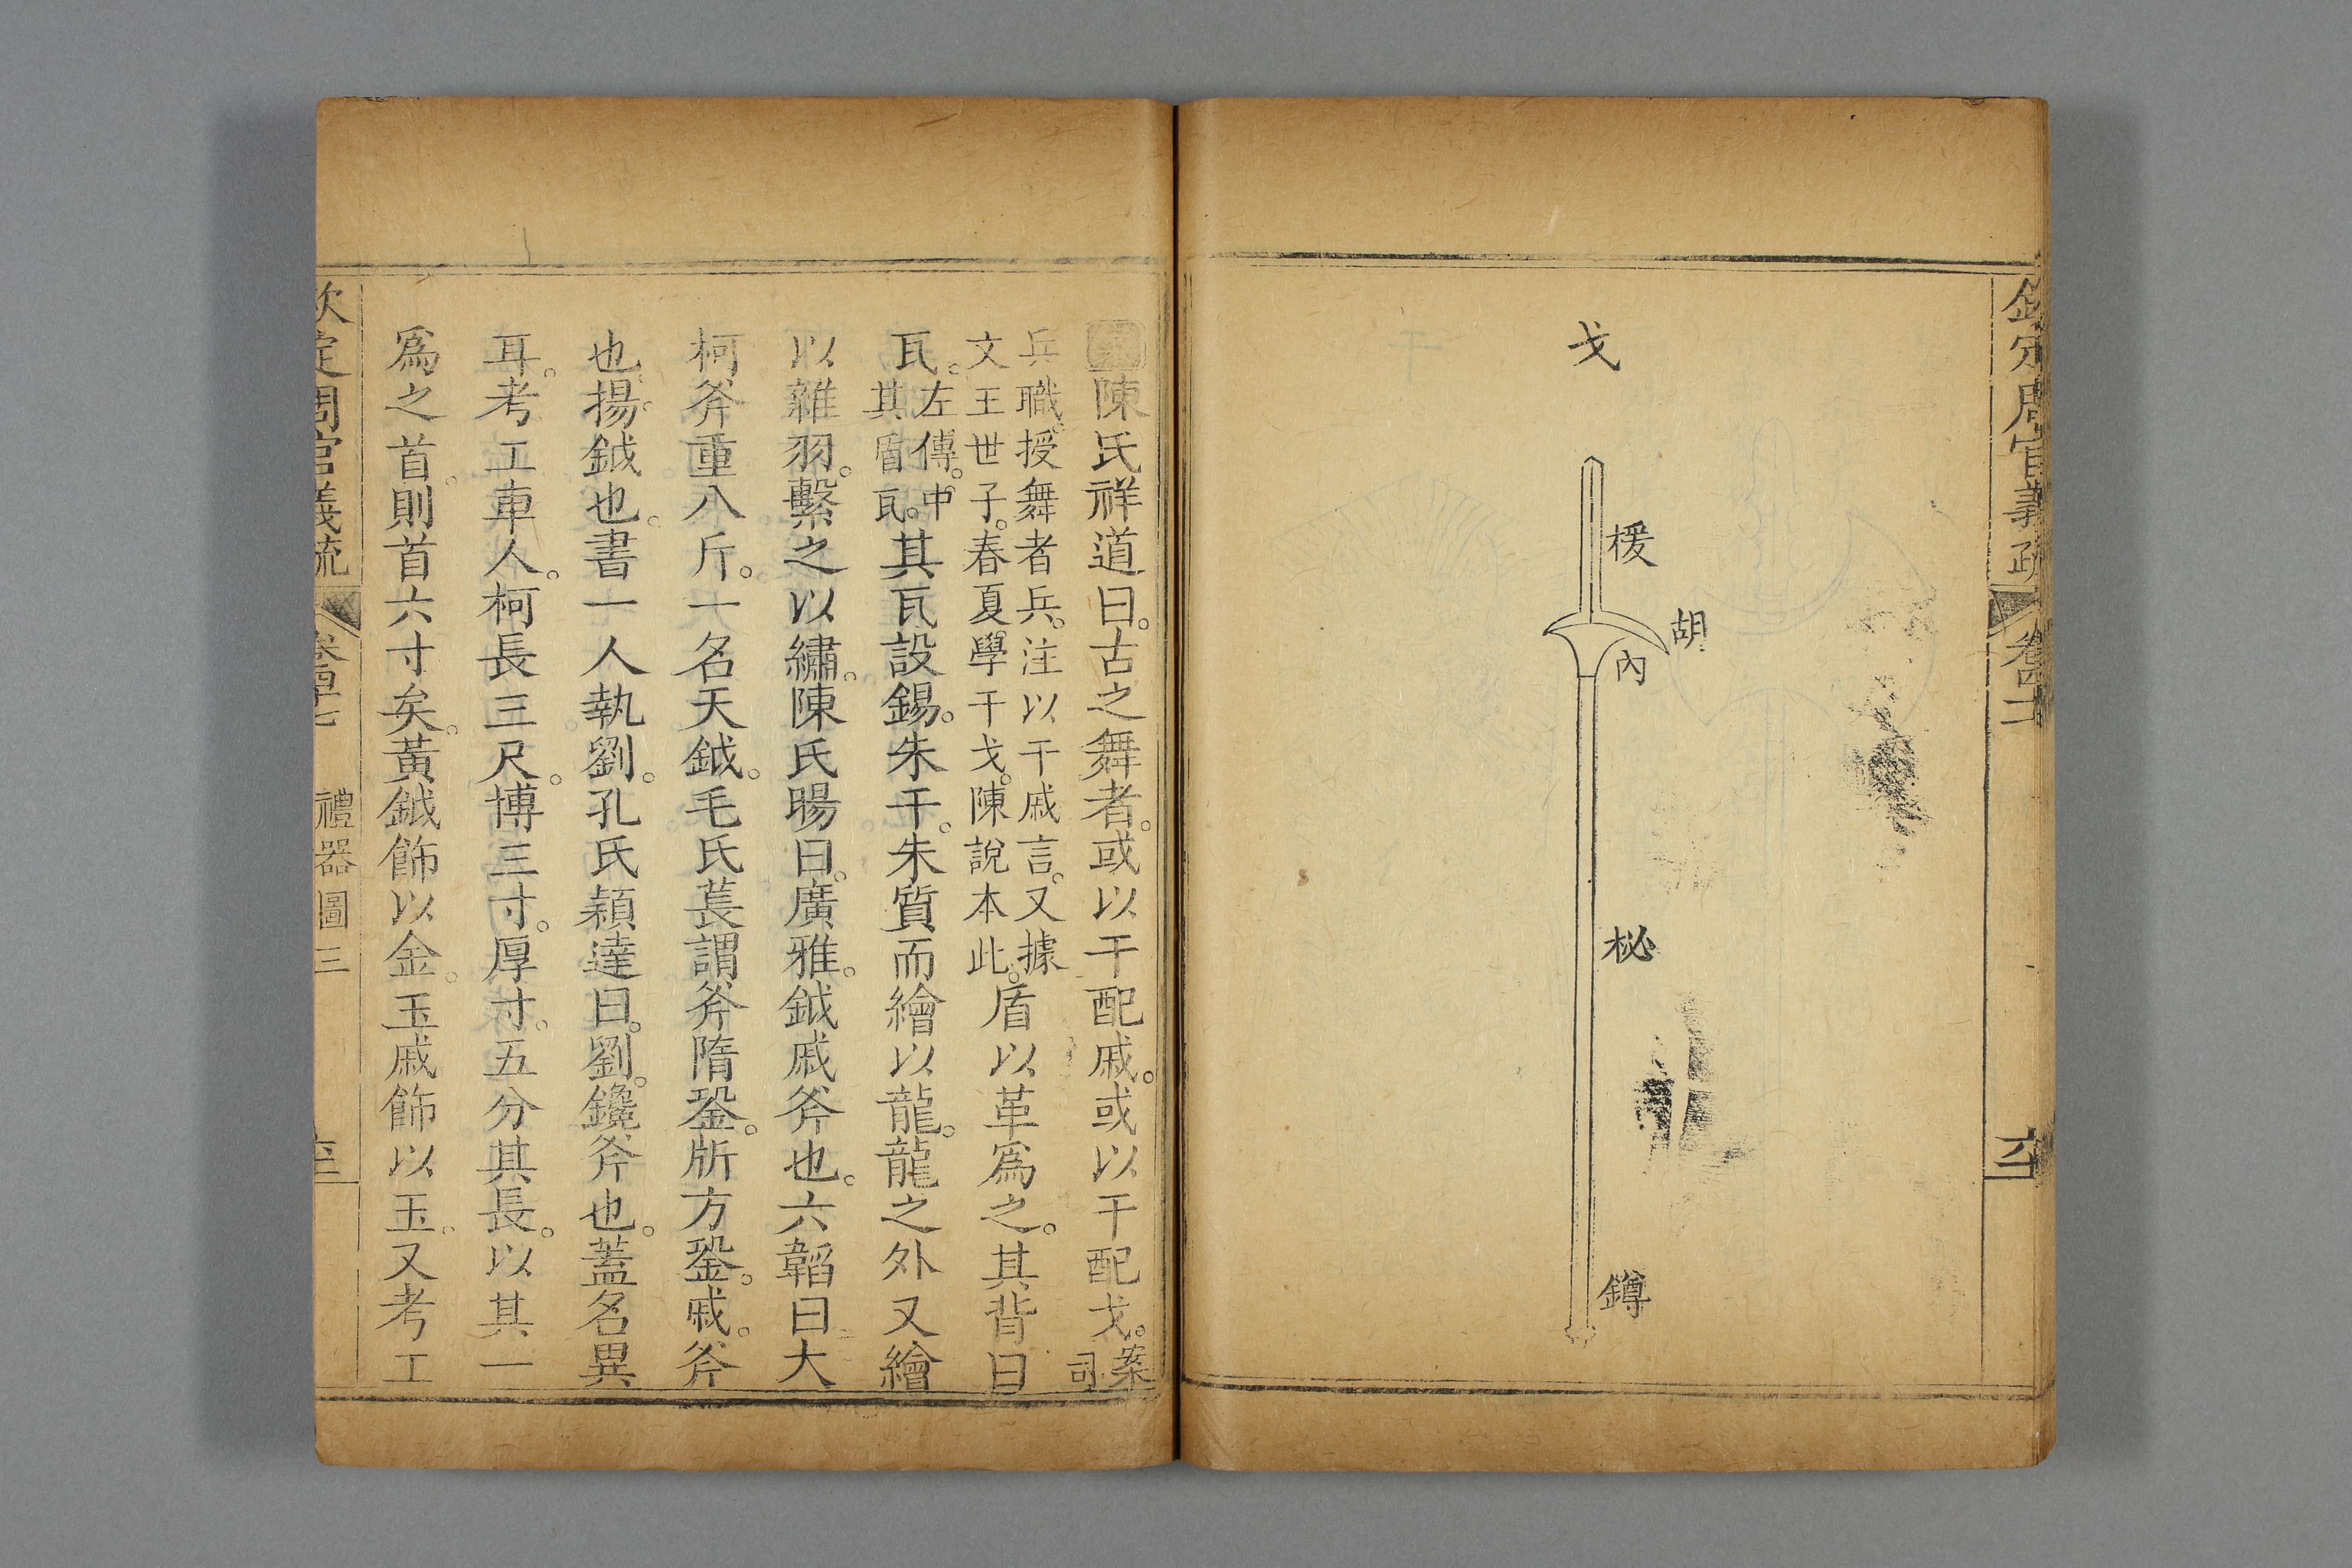 戈
楥
胡
內
柲
鐏
陳氏祥道曰。古之舞者。或以干配戚。或以干配戈。案司
兵職。授舞者兵。注以干戚言。又據
文王世子。春夏學干戈。陳說本此。盾以革爲之。其背曰
瓦。左傳。中其盾瓦。其瓦設錫。朱干。朱質而繪以龍。龍之外又繪
以雜羽。繫之以繡。陳氏暘曰。廣雅。鉞戚斧也。六韜曰大
柯斧重八斤。一名天鉞。毛氏萇謂斧隋銎。斨方銎。戚。斧
也。揚。鉞也。書一人執劉。孔氏穎達曰。劉。鑱斧也。蓋名異
耳。考工車人。柯長三尺。博三寸。厚寸。五分其長。以其一
爲之首。則首六寸矣。黃鉞飾以金。玉戚飾以玉。又考工
欽定周官義疏
禮器圖三